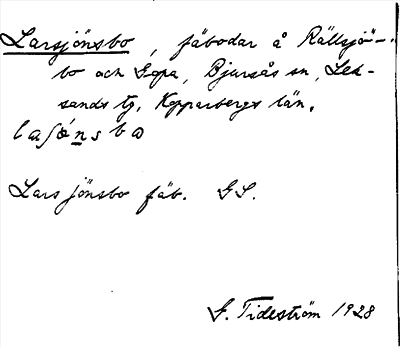 Larsjönsbo, fäbodar å Rällsjö-
bo och Sopa, Bjursås sn, Lek-
sands tg, Kopparbergs län.
Larsjönsbo fäb. GS.
G. Tideström 1928